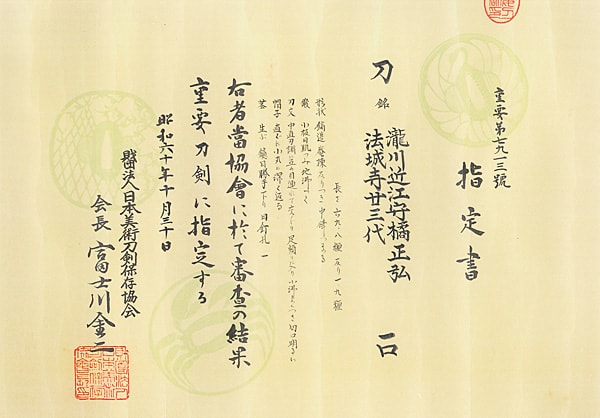 重要第七九一三號
指定書
刀 銘 瀧川近江守橘正弘
法城寺廿三代 一口
長さ 六九・八糎 反り 一・九糎
形状 鎬造 庵棟 反りつき 中鋒
鍛 小板目肌つみ 地沸よく
刃文 中直刃調
帽子 直ぐに小丸に深く返る
茎 生ぶ 鑢目勝手下り 目釘孔 一
右者當協會に於て審査の結果
重要刀剣に指定する
昭和六十年十月三十日
財團法人日本美術刀剣保存協会
会長 富士川金二